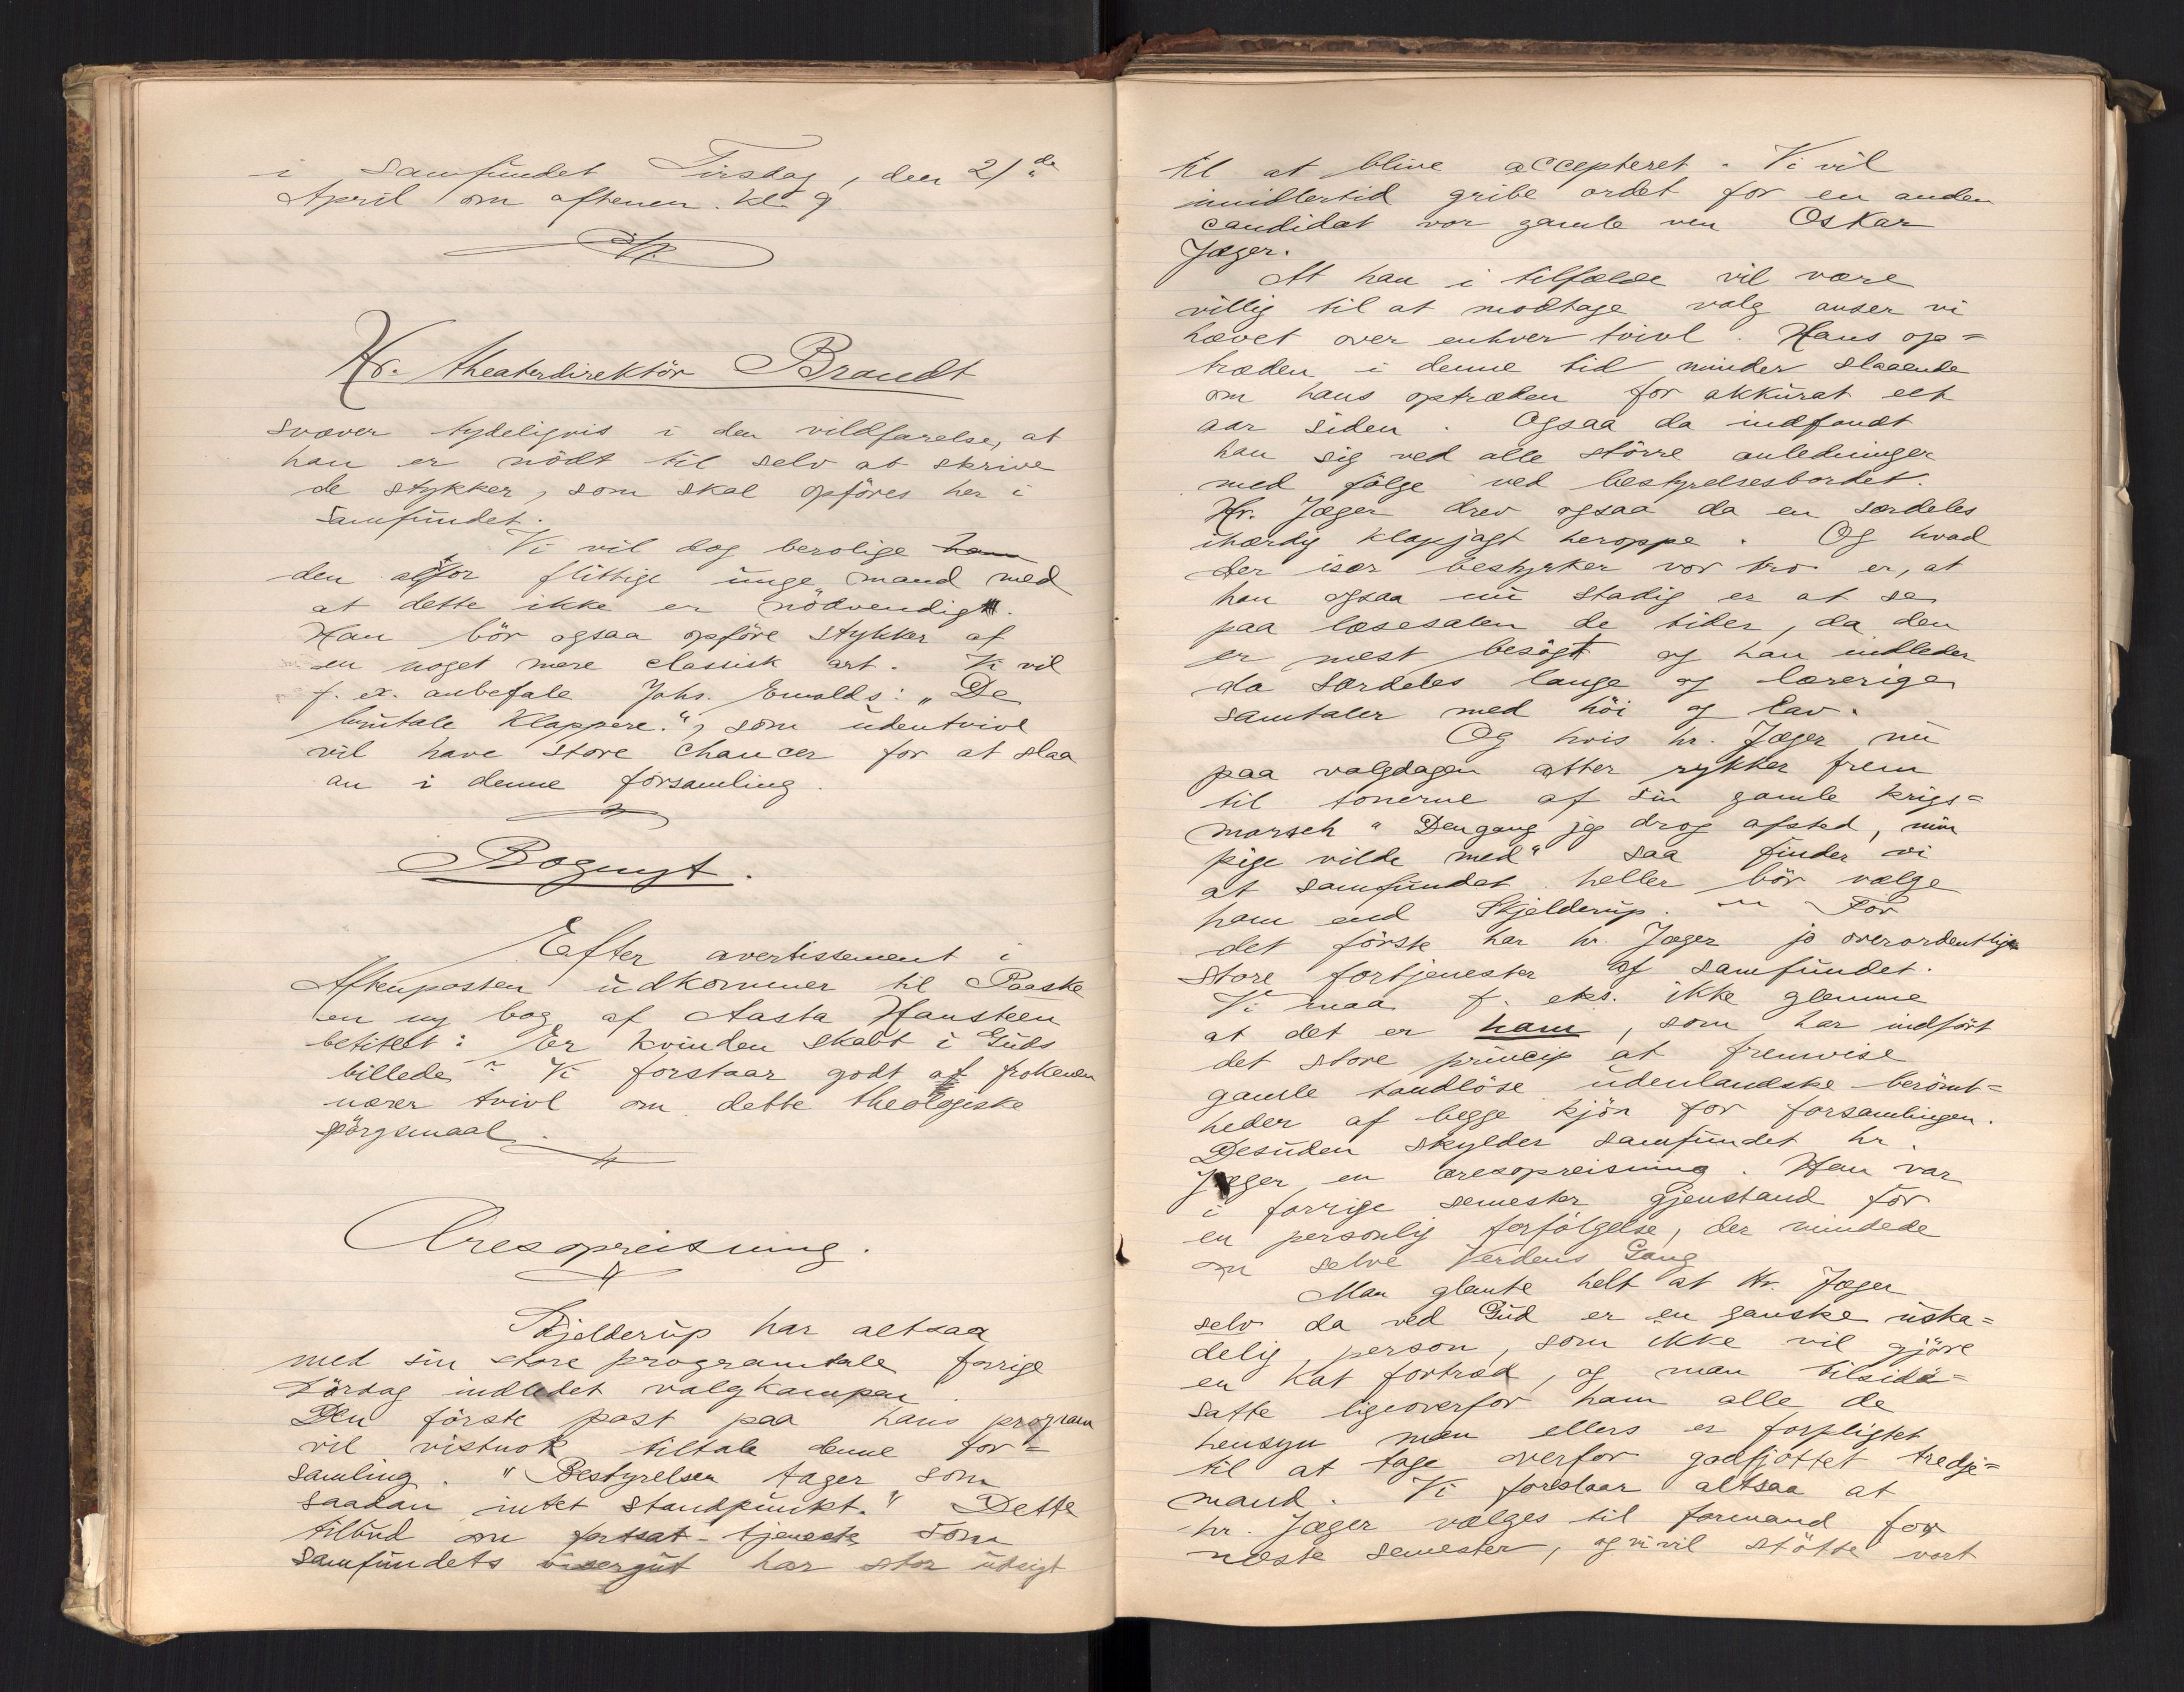 i Samfundet Tirsdag, den 21de
April om aftenen. kl 9
Hr. theaterdirektör Brandt
svæver tydeligvis i den vildfarelse, at
han er nödt til selv at skrive
de stykker, som skal opföres her i
Samfundet.
Vi vil dog berolige ham
den altfor flittige unge mand med
at dette ikke er nödvendigt.
Han bör ogsaa opföre stykker af
en noget mere classisk art. Vi vil
f. ex. anbefale Johs. Ewalds: „De
brutale Klappere.", som udentvivl
vil have store chancer for at slaa
an i denne forsamling.
Bognyt.
Efter avertissement i
Aftenposten udkommer til Paaske
en ny bog af Aasta Hansteen
betitlet: Er kvinden skabt i Guds
billede? Vi forstaar godt at frøkenen
nærer tvivl om dette theologiske
spörgsmaal.
Æresopreisning.
Skjelderup har altsaa
med sin store programtale forrige
Lördag indledet valgkampen.
Den förste post paa hans program
vil vistnok tiltale denne for=
samling. "Bestyrelsen tager som
saadan intet standpunkt." Dette
tilbud om fortsat tjeneste som
Samfundets visergut har stor udsigt
til at blive accepteret. Vi vil
imidlertid gribe ordet for en anden
candidat vor gamle ven Oskar
Jæger.
At han i tilfælde vil være
villig til at modtage valg anser vi
hævet over enhver tvivl. Hans op=
træden i denne tid minder slaaende
om hans optræden for akkurat eet
aar siden. Ogsaa da indfandt
han sig ved alle större anledninger
med fölge ved bestyrelsesbordet.
Hr. Jæger drev ogsaa da en særdeles
ihærdig klapjagt heroppe. Og hvad
der især bestyrker vor tro er, at
han ogsaa nu stadig er at se
paa læsesalen de tider, da den
er mest besögt og han indleder
da særdeles lange og lærerige
samtaler med höi og lav.
Og hvis hr. Jæger nu
paa valgdagen atter rykker frem
til tonerne af sin gamle krigs=
marsch "Dengang jeg drog afsted, min
pige vilde med" saa finder vi
at samfundet heller bör vælge
ham end Skjelderup. — For
det förste har hr. Jæger jo overordentlige
store fortjenester af samfundet.
Vi maa f. eks. ikke glemme
at det er ham, som har indfört
det store princip at fremvise
gamle tandlöse udenlandske berömt=
heder af begge kjön for forsamlingen.
Desuden skylder samfundet hr.
Jæger en æresopreisning. Han var
i forrige semester gjenstand for
en personlig forfölgelse, der mindede
om selve Verdens Gang
Man glemte helt at Hr. Jæger
selv da ved Gud er en ganske uska=
delig person, som ikke vil gjöre
en kat fortræd, og man tilside=
satte ligeoverfor ham alle de
hensyn man ellers er forpligtet
til at tage overfor godfjottet tredje=
mand. Vi foreslaar altsaa at
hr. Jæger vælges til formand for
næste semester, og vi vil stötte vort